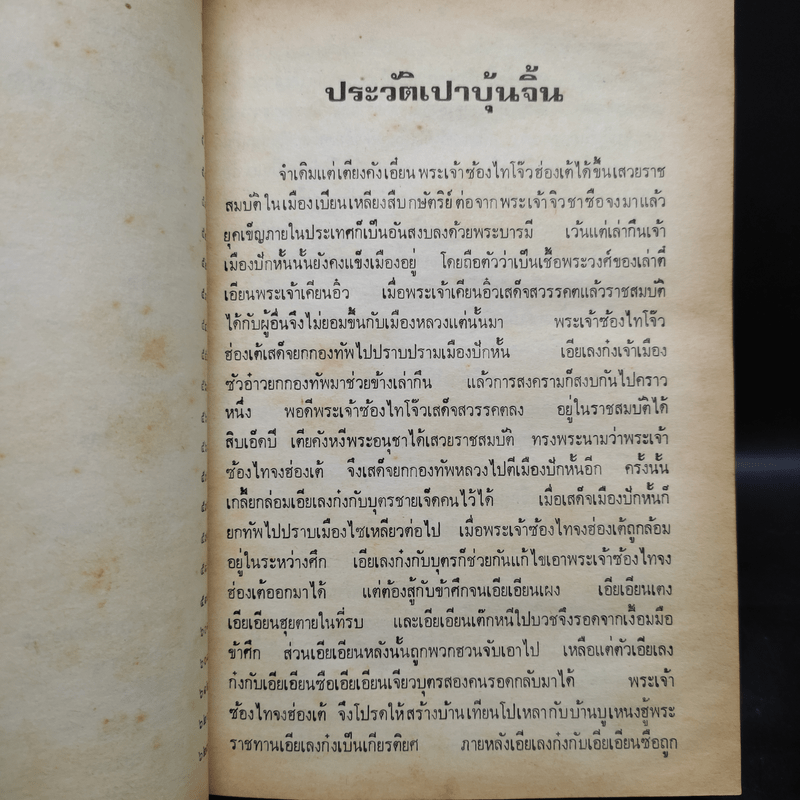 ประวัติเปาบุ้นจิ้น
จำเดิมแต่เตียงคังเอี๋ยน พระเจ้าซ้องไทโจ๊วฮ่องเต้ได้ขึ้นเสวยราช
สมบัติในเมืองเปียนเหลียงสืบกษัตริย์ต่อจากพระเจ้าจิวชาซือจงมาแล้ว
ยุคเข็ญภายในประเทศก็เป็นอันสงบลงด้วยพระบารมี เว้นแต่เล่ากึนเจ้า
เมืองปักหั้นนั้นยังคงแข็งเมืองอยู่ โดยถือตัวว่าเป็นเชื้อพระวงศ์ของเล่าตี้
เอียนพระเจ้าเคียนอิ๋ว เมื่อพระเจ้าเคียนอิ๋วเสด็จสวรรคตแล้วราชสมบัติ
ได้กับผู้อื่นจึงไม่ยอมขึ้นกับเมืองหลวงแต่นั้นมา พระเจ้าซ้องไทโจ๊ว
ฮ่องเต้เสด็จยกกองทัพไปปราบปรามเมืองปักหั้น เอียเลงก๋งเจ้าเมือง
ซัวอ๋าวยกกองทัพมาช่วยข้างเล่ากึน แล้วการสงครามก็สงบกันไปคราว
หนึ่ง พอดีพระเจ้าซ้องไทโจ๊วเสด็จสวรรคตลง อยู่ในราชสมบัติได้
สิบเอ็ดปี เตียคังหงีพระอนุชาได้เสวยราชสมบัติ ทรงพระนามว่าพระเจ้า
ซ้องไทจงฮ่องเต้ จึงเสด็จยกกองทัพหลวงไปตีเมืองปักหั้นอีก ครั้งนั้น
เกลี้ยกล่อมเอียเลงก๋งกับบุตรชายเจ็ดคนไว้ได้ เมื่อเสด็จเมืองปักหั้นก็
ยกทัพไปปราบเมืองไซเหลียวต่อไป เมื่อพระเจ้าซ้องไทจงฮ่องเต้ถูกล้อม
อยู่ในระหว่างศึก เอียเลงก๋งกับบุตรก็ช่วยกันแก้ไขเอาพระเจ้าซ้องไทจง
ฮ่องเต้ออกมาได้ แต่ต้องสู้กับข้าศึกจนเอียเอียนเผง เอียเอียนเตง
เอียเอียนฮุยตายในที่รบ และเอียเอียนเต๊กหนีไปบวชจึงรอดจากเงื้อมมือ
ข้าศึก ส่วนเอียเอียนหลังนั้นถูกพวกฮวนจับเอาไป เหลือแต่ตัวเอียเลง
ก๋งกับเอียเอียนซือเอียเอียนเจียวบุตรสองคนรอดกลับมาได้ พระเจ้า
ซ้องไทจงฮ่องเต้ จึงโปรดให้สร้างบ้านเทียนโปเหลากับบ้านบูเหนงฮู้พระ
ราชทานเอียเลงก๋งเป็นเกียรติยศ ภายหลังเอียเลงก๋งกับเอียเอียนซือถูก